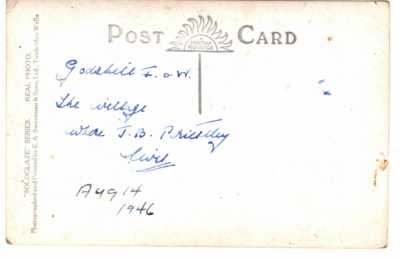 POST CARD
Godshill I. o W.
the village
where J. B. Priestley
lives
Aug 14
1946
"SOLOGLAZE" SERIES. REAL PHOTO.
Photographed and Printed by E. A. Sweetman & Sons, Ltd., Tunbridge Wells